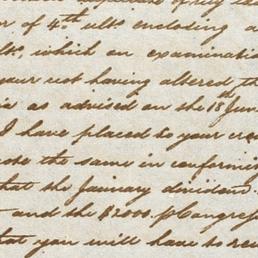 of 4th ulto enclosing a
which on examination
your not having altered th
as advised on the 18th Jun
I have placed to your cre
the same in conformi
that the January dividend
and the $2000. Congres
that you will have to re